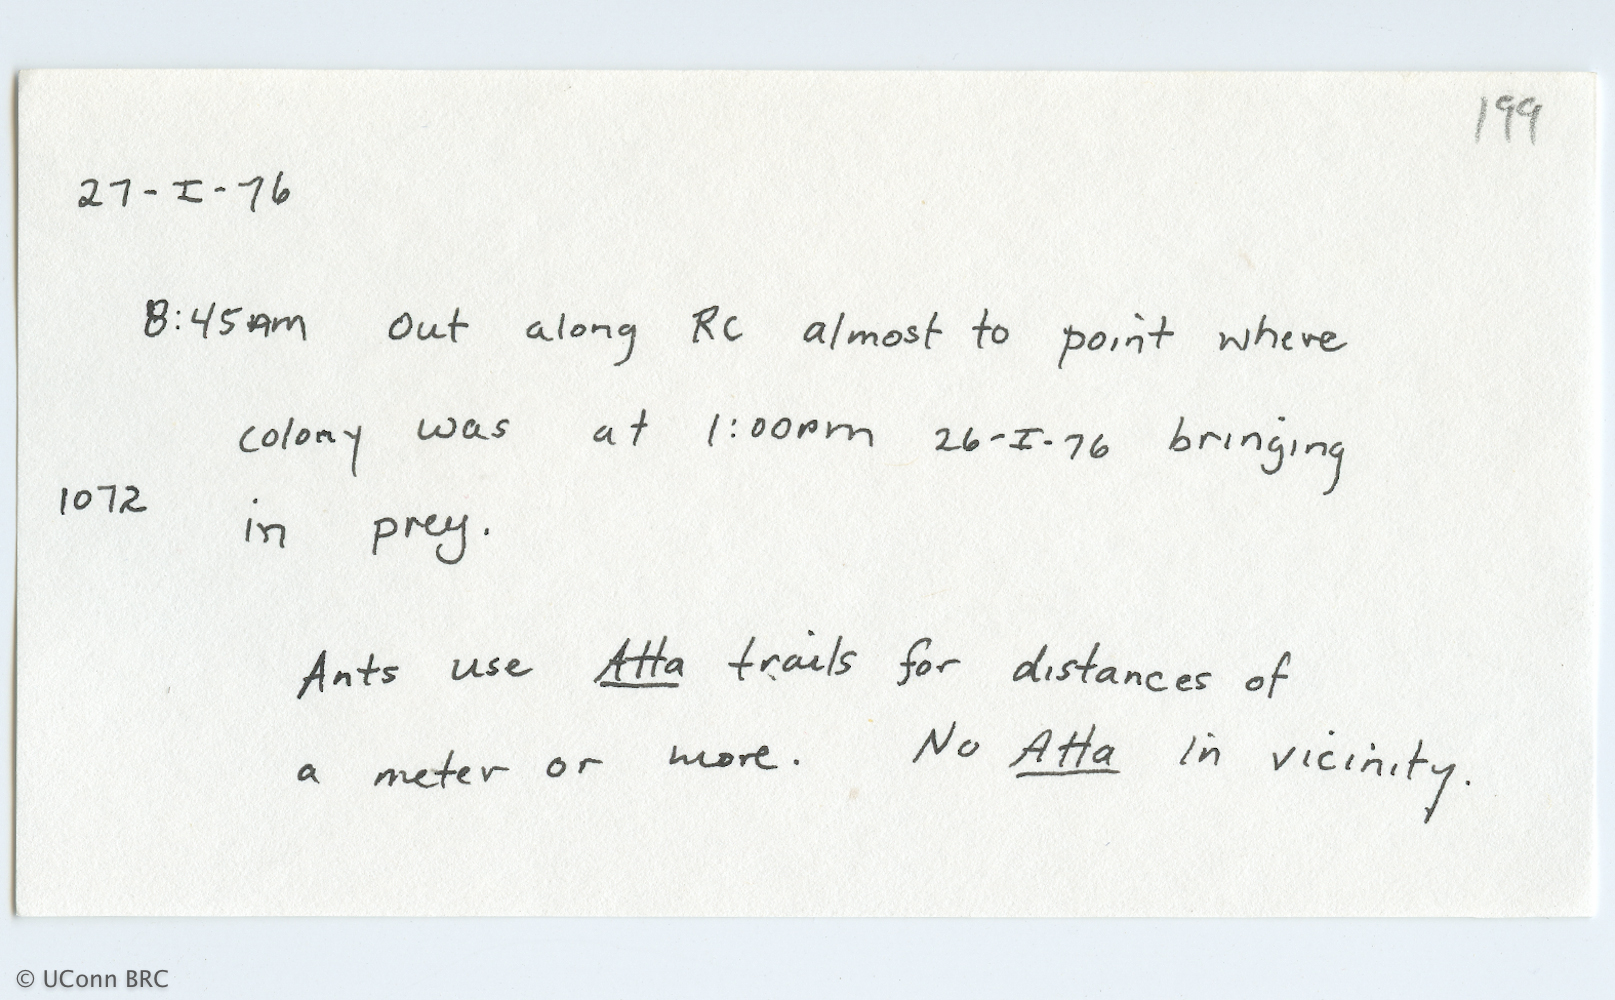 199
27-I-76
8:45AM Out along RC almost to point where
colony was at 1:00PM 26-I-76 bringing
1072 in prey.
Ants use Atta trails for distances of
a meter or more. No Atta in vicinity.
© UConn BRC